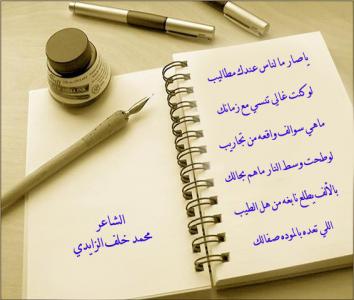 ياصار ما لناس عندك مطاليب
لو كنت غالي تنسي مع زمانك
ماهي سوالف واقعه من تجاريب
لو طحت وسط النار ماهم بحالك
بالألف يطلع نابغه من هل الطيب
اللي تعده بالموده صفالك
الشاعر
محمد خلف الزايدي